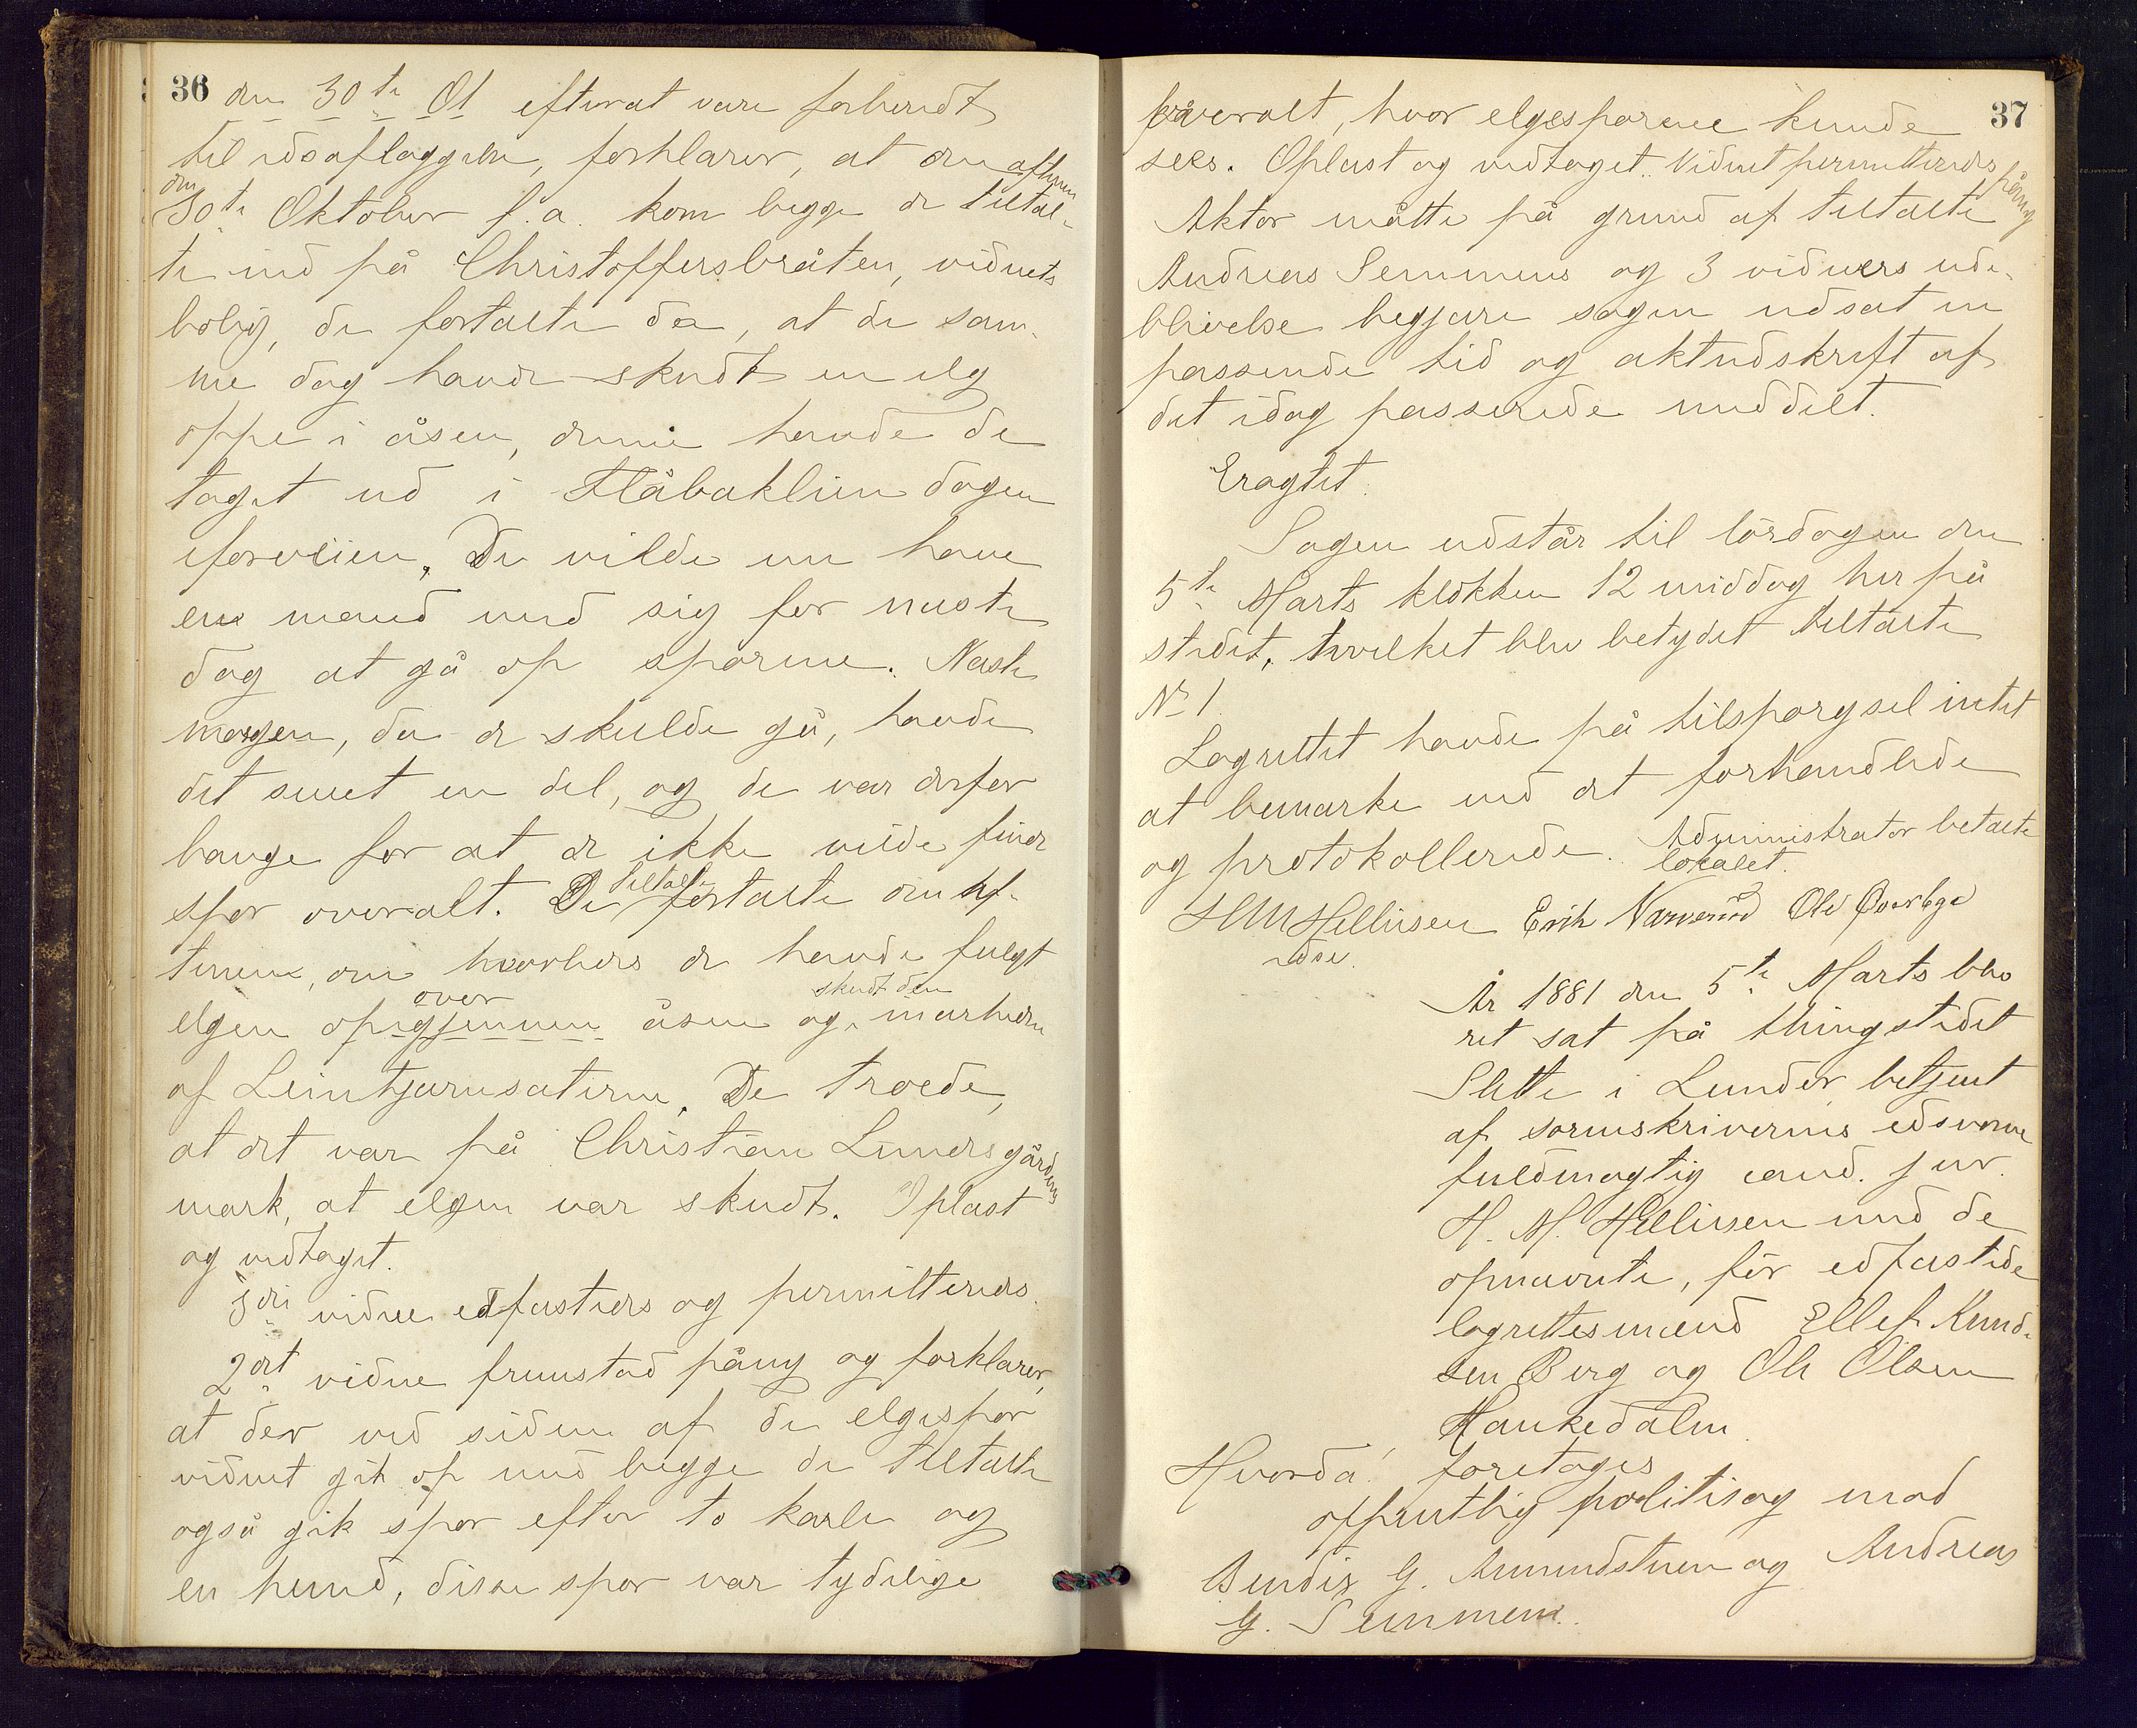 36
den 30te Ok efterat være forberedt
til edsaflæggelse, forklarer, at den aftenen
den
30te Oktober f. a. kom begge de tiltal-
te ind på Christoffersbråten, vidnets
bolig, de fortalte da, at de sam-
me dag havde skudt en elg
oppe i åsen, denne havde de
taget ud i Flåbaklien dagen
iforveien. De vilde nu have
en mand med sig for næste
dag at gå op sporene. Næste
morgen, da de skulde gå, havde
det sneet en del, og de var derfor
bange for at de ikke vilde finde
spor overalt. De tiltalte fortalte om af-
tenen, om hvorledes de havde fulgt
elgen op igjennem over åsen og skudt den i nærheden
af Leintjernsæteren. De troede,
at det var på Christian Lunders gårdens
mark, at elgen var skudt. Oplæst
og vedtaget.
3die vidne edfæstedes og permitteredes.
2det vidne fremstod påny og forklarer,
at der ved siden af de elgespor
vidnet gik op med begge de tiltalte
også gik spor efter to karle og
en hund, disse spor var tydelige
37
overalt, hvor elgesporene kunde
sees. Oplæst og vedtaget. Vidnet permitteredes påny
Aktor måtte på grund af tiltalte
Andreas Semmens og 3 vidners ude-
blivelse begjære sagen udsat en
passende tid og aktudskrift af
det idag passerede meddelt.
Eragtet:
Sagen udstår til lørdagen den
5te Marts klokken 12 middag her på
stedet, hvilket blev betydet tiltalte
No 1.
Lagrettet havde på tilspørgsel intet
at bemærke ved det forhandlede
og protokollerede. Administrator betalte
lokalet.
HMHelliesen Erik Narverud Ole Øverbye
edsv.
År 1881 den 5te Marts blev
ret sat på thingstedet
Slette i Lunder betjent
af sorenskriverens edsvorne
fuldmægtig cand. jur.
H. M. Helliesen med de
opnævnte, før edfæstede
lagrettesmænd Ellef Knud-
sen Berg og Ole Olsen
Haukedalen.
Hvorda! foretoges
offentlig politisag mod
G. Amundstuen og Andreas
G. Semmen.